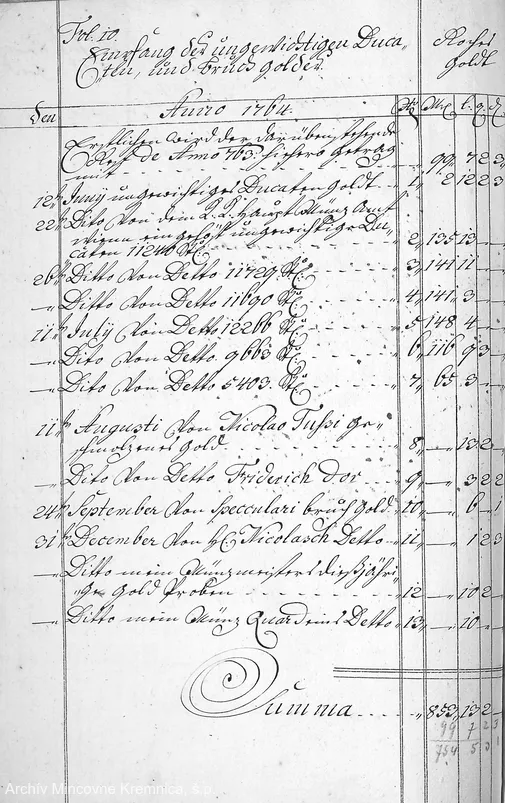 Fol. 10.
Empfang der ungewichtigen Duca-
ten, und Bruch Goldes. Roches
Goldt
den Anno 1764. No. M l. q. d
Erstlichen wird der darüben stehende
Rest de Anno 763. hiehero getrag
mit - - - 99 7 2 3
12t Juny ungewichtiges Ducaten Goldt - - 1 2 12 2 3
22t Dito von dem K. K. Haupt Münz Amt
Wienn ein ungewichtige Du-
caten 11240 Stü - - 2 135 13 -
26t Ditto von Detto 11729. Stü - - 3 141 11 -
- Ditto von Detto 11690 Stü - - 4 141 3 -
11t July von Detto 12266 Stü - - 5 148 4 -
- Dito von Detto 9663 Stü - - 6 116 9 3 -
- Dito von Detto 5403. Stü - - 7 65 3 -
11t Augusti von Nicolao Tussi ge-
schmolzenes Gold - - 8 - 13 2 -
- Dito von Detto Friderich d'or - - 9 - 3 2 2
24t September von Specculari bruch Gold - 10 - 6 - 1
31t December von H Nicolasch Detto - 11 - 1 2 3
- Ditto mein Münzmeisters diessjähri-
ge Gold Proben - - 12 - 10 2 -
- Ditto mein Münz Quardeins Detto 13 - 10 - -
Summa - - - 853 13 2 -
99 7 2 3
754 5 3 1
Archív Mincovne Kremnica, š.p.